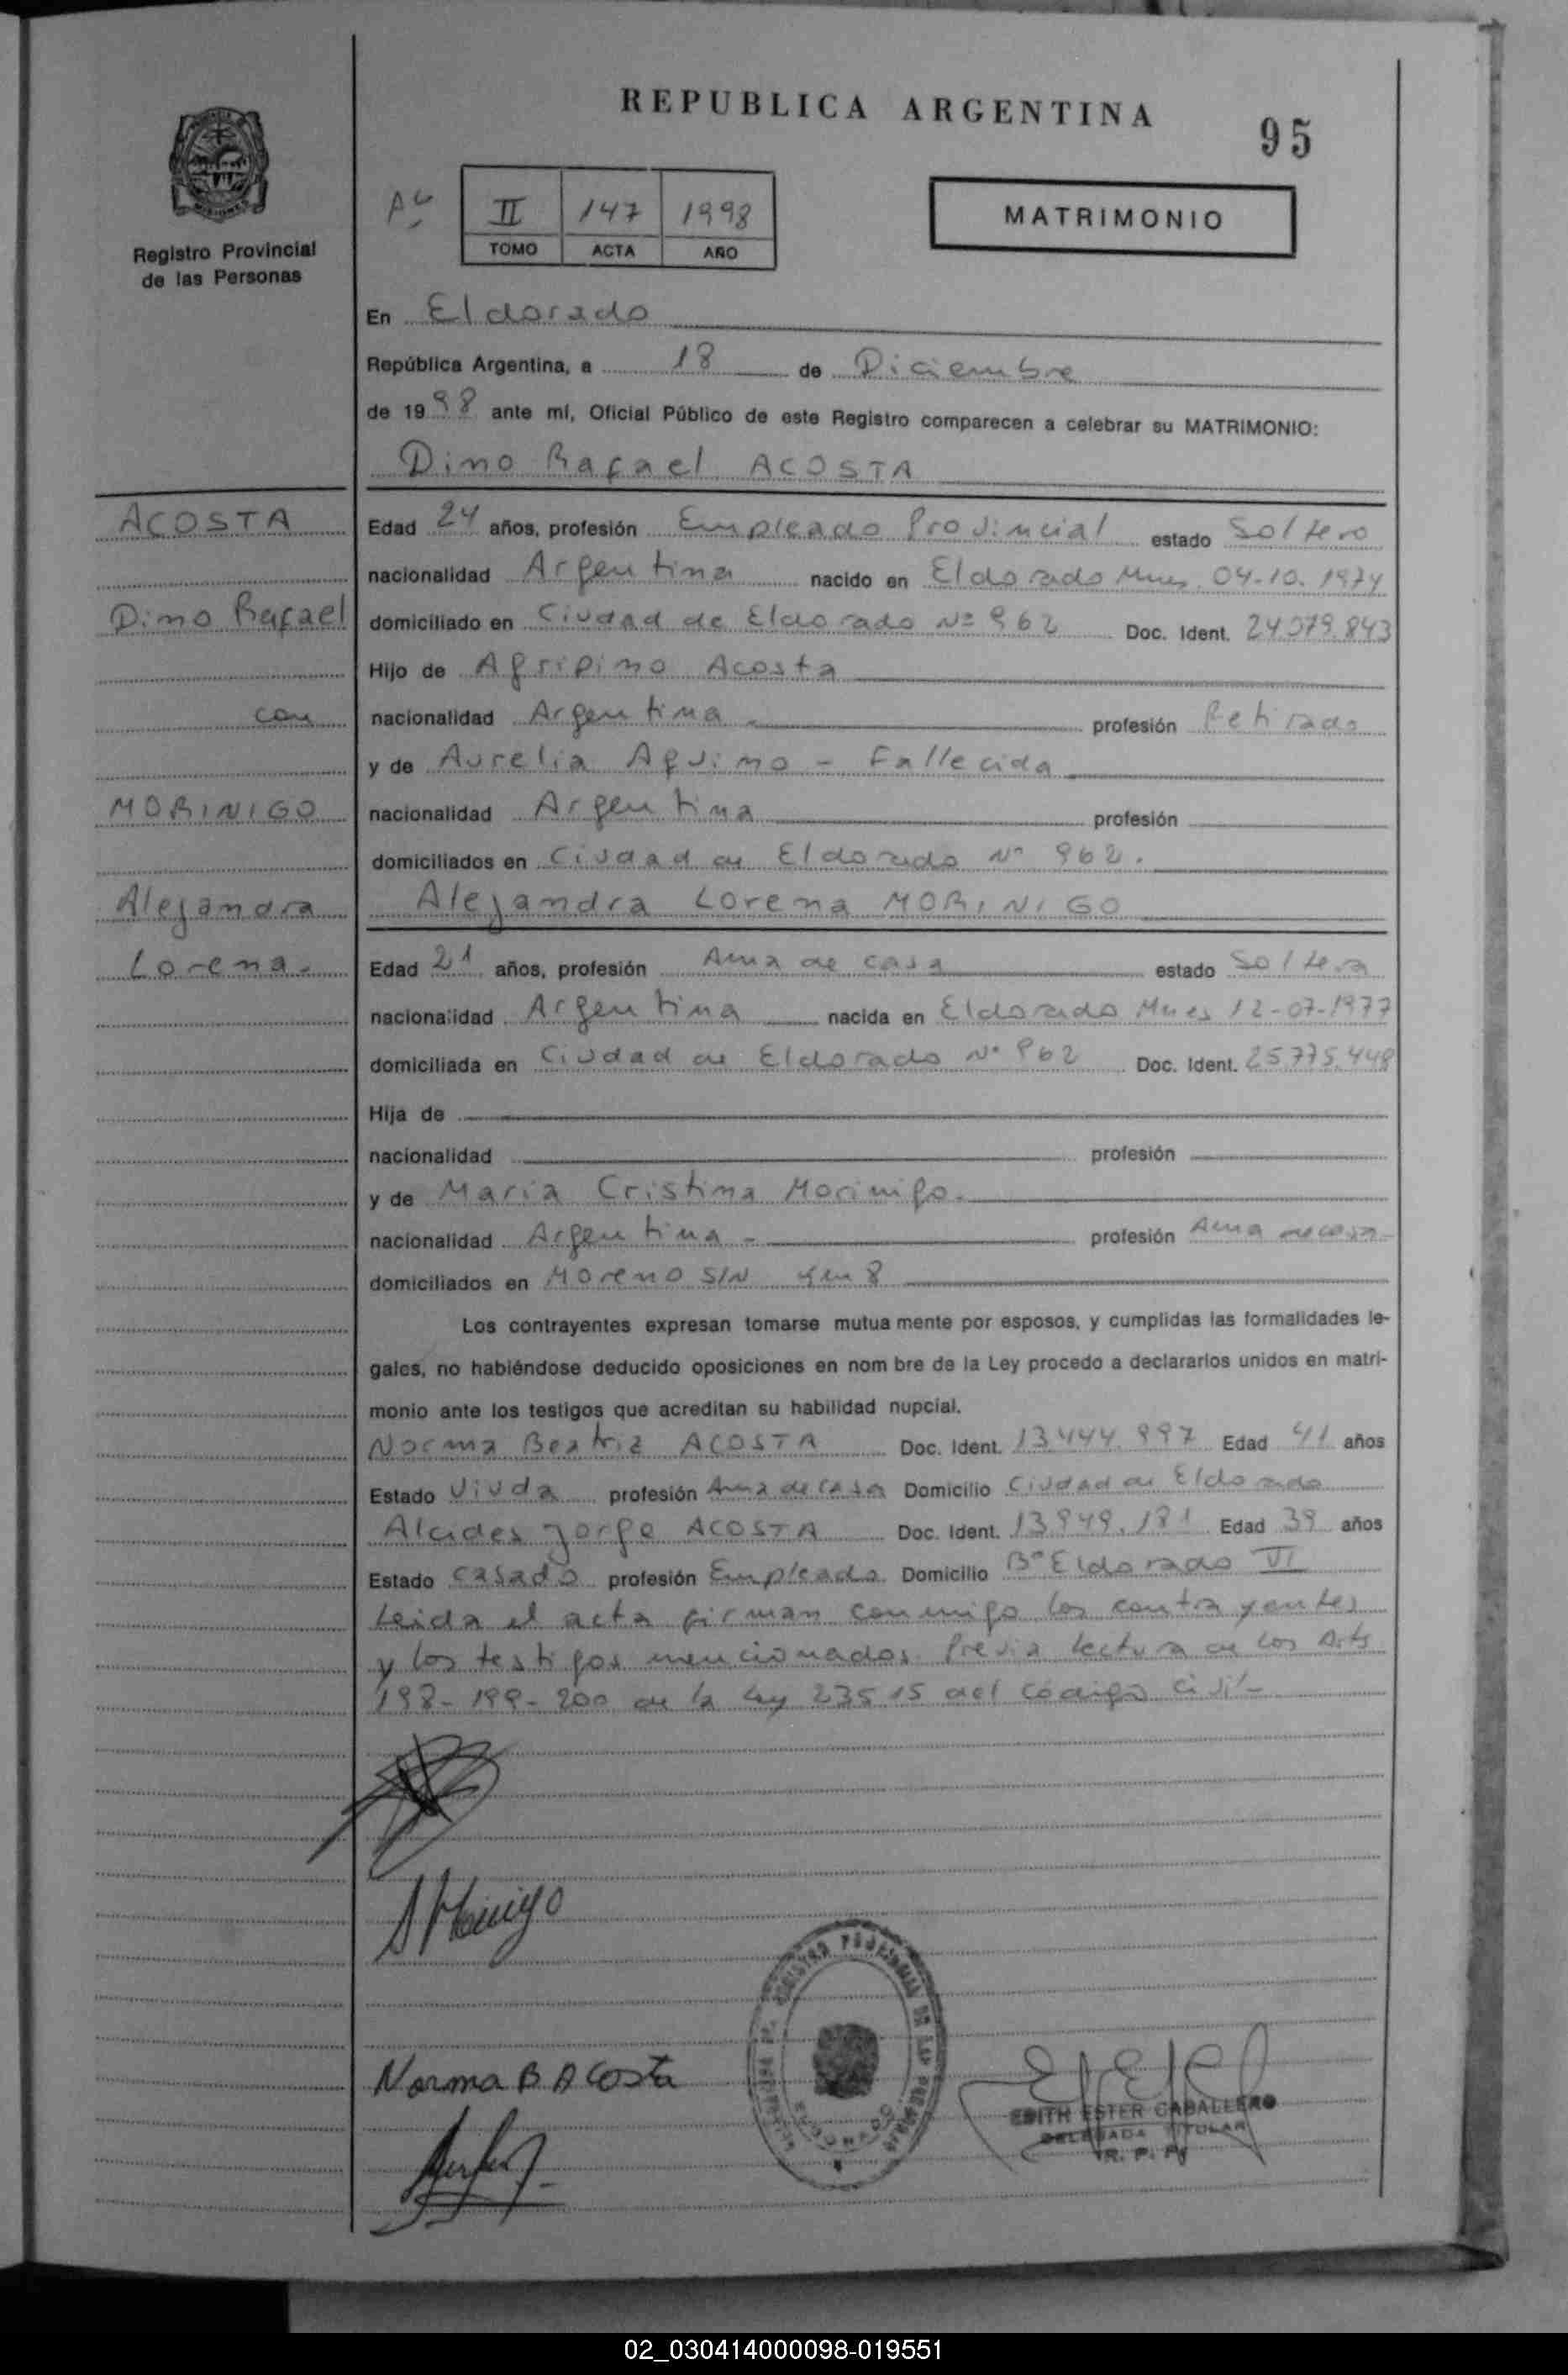 REPUBLICA ARGENTINA
95
Registro Provincial
de las Personas
II 147 1998
TOMO ACTA AÑO
MATRIMONIO
En Eldorado
República Argentina, a 18 de Diciembre
de 1998 ante mí, Oficial Público de este Registro comparecen a celebrar su MATRIMONIO:
Dino Rafael ACOSTA
ACOSTA
Dino Rafael
con
MORINIGO
Alejandra
Lorena.
Edad 24 años, profesión Empleado Provincial estado Soltero
nacionalidad Argentina nacido en Eldorado Mnes 04-10-1974
domiciliado en Ciudad de Eldorado Nº 962 Doc. Ident. 24.079.843
Hijo de Agripino Acosta
nacionalidad Argentina profesión Retirado
y de Aurelia Aquino - Fallecida
nacionalidad Argentina profesión
domiciliados en Ciudad de Eldorado Nº 962.
Alejandra Lorena MORINIGO
Edad 21 años, profesión Ama de casa estado Soltera
nacionalidad Argentina nacida en Eldorado Mnes 12-07-1977
domiciliada en Ciudad de Eldorado Nº 962 Doc. Ident. 25.775.448
Hija de
nacionalidad profesión
y de Maria Cristina Morinigo.
nacionalidad Argentina - profesión Ama de casa -
domiciliados en Moreno S/N Km 8
Los contrayentes expresan tomarse mutua mente por esposos, y cumplidas las formalidades le-
gales, no habiéndose deducido oposiciones en nom bre de la Ley procedo a declararlos unidos en matri-
monio ante los testigos que acreditan su habilidad nupcial.
Norma Beatriz ACOSTA Doc. Ident. 13.444.997 Edad 41 años
Estado Viuda profesión Ama de casa Domicilio Ciudad de Eldorado
Alcides Jorge ACOSTA Doc. Ident. 13.949.181 Edad 39 años
Estado casado profesión Empleado Domicilio Bº Eldorado VI
Leida el acta firman conmigo los contrayentes
y los testigos mencionados. Previa lectura de los Arts
198-199-200 de la Ley 23515 del código civil-
Norma B Acosta
EDITH ESTER CABALLERO
DELEGADA TITULAR
R. P. P.
02_030414000098-019551